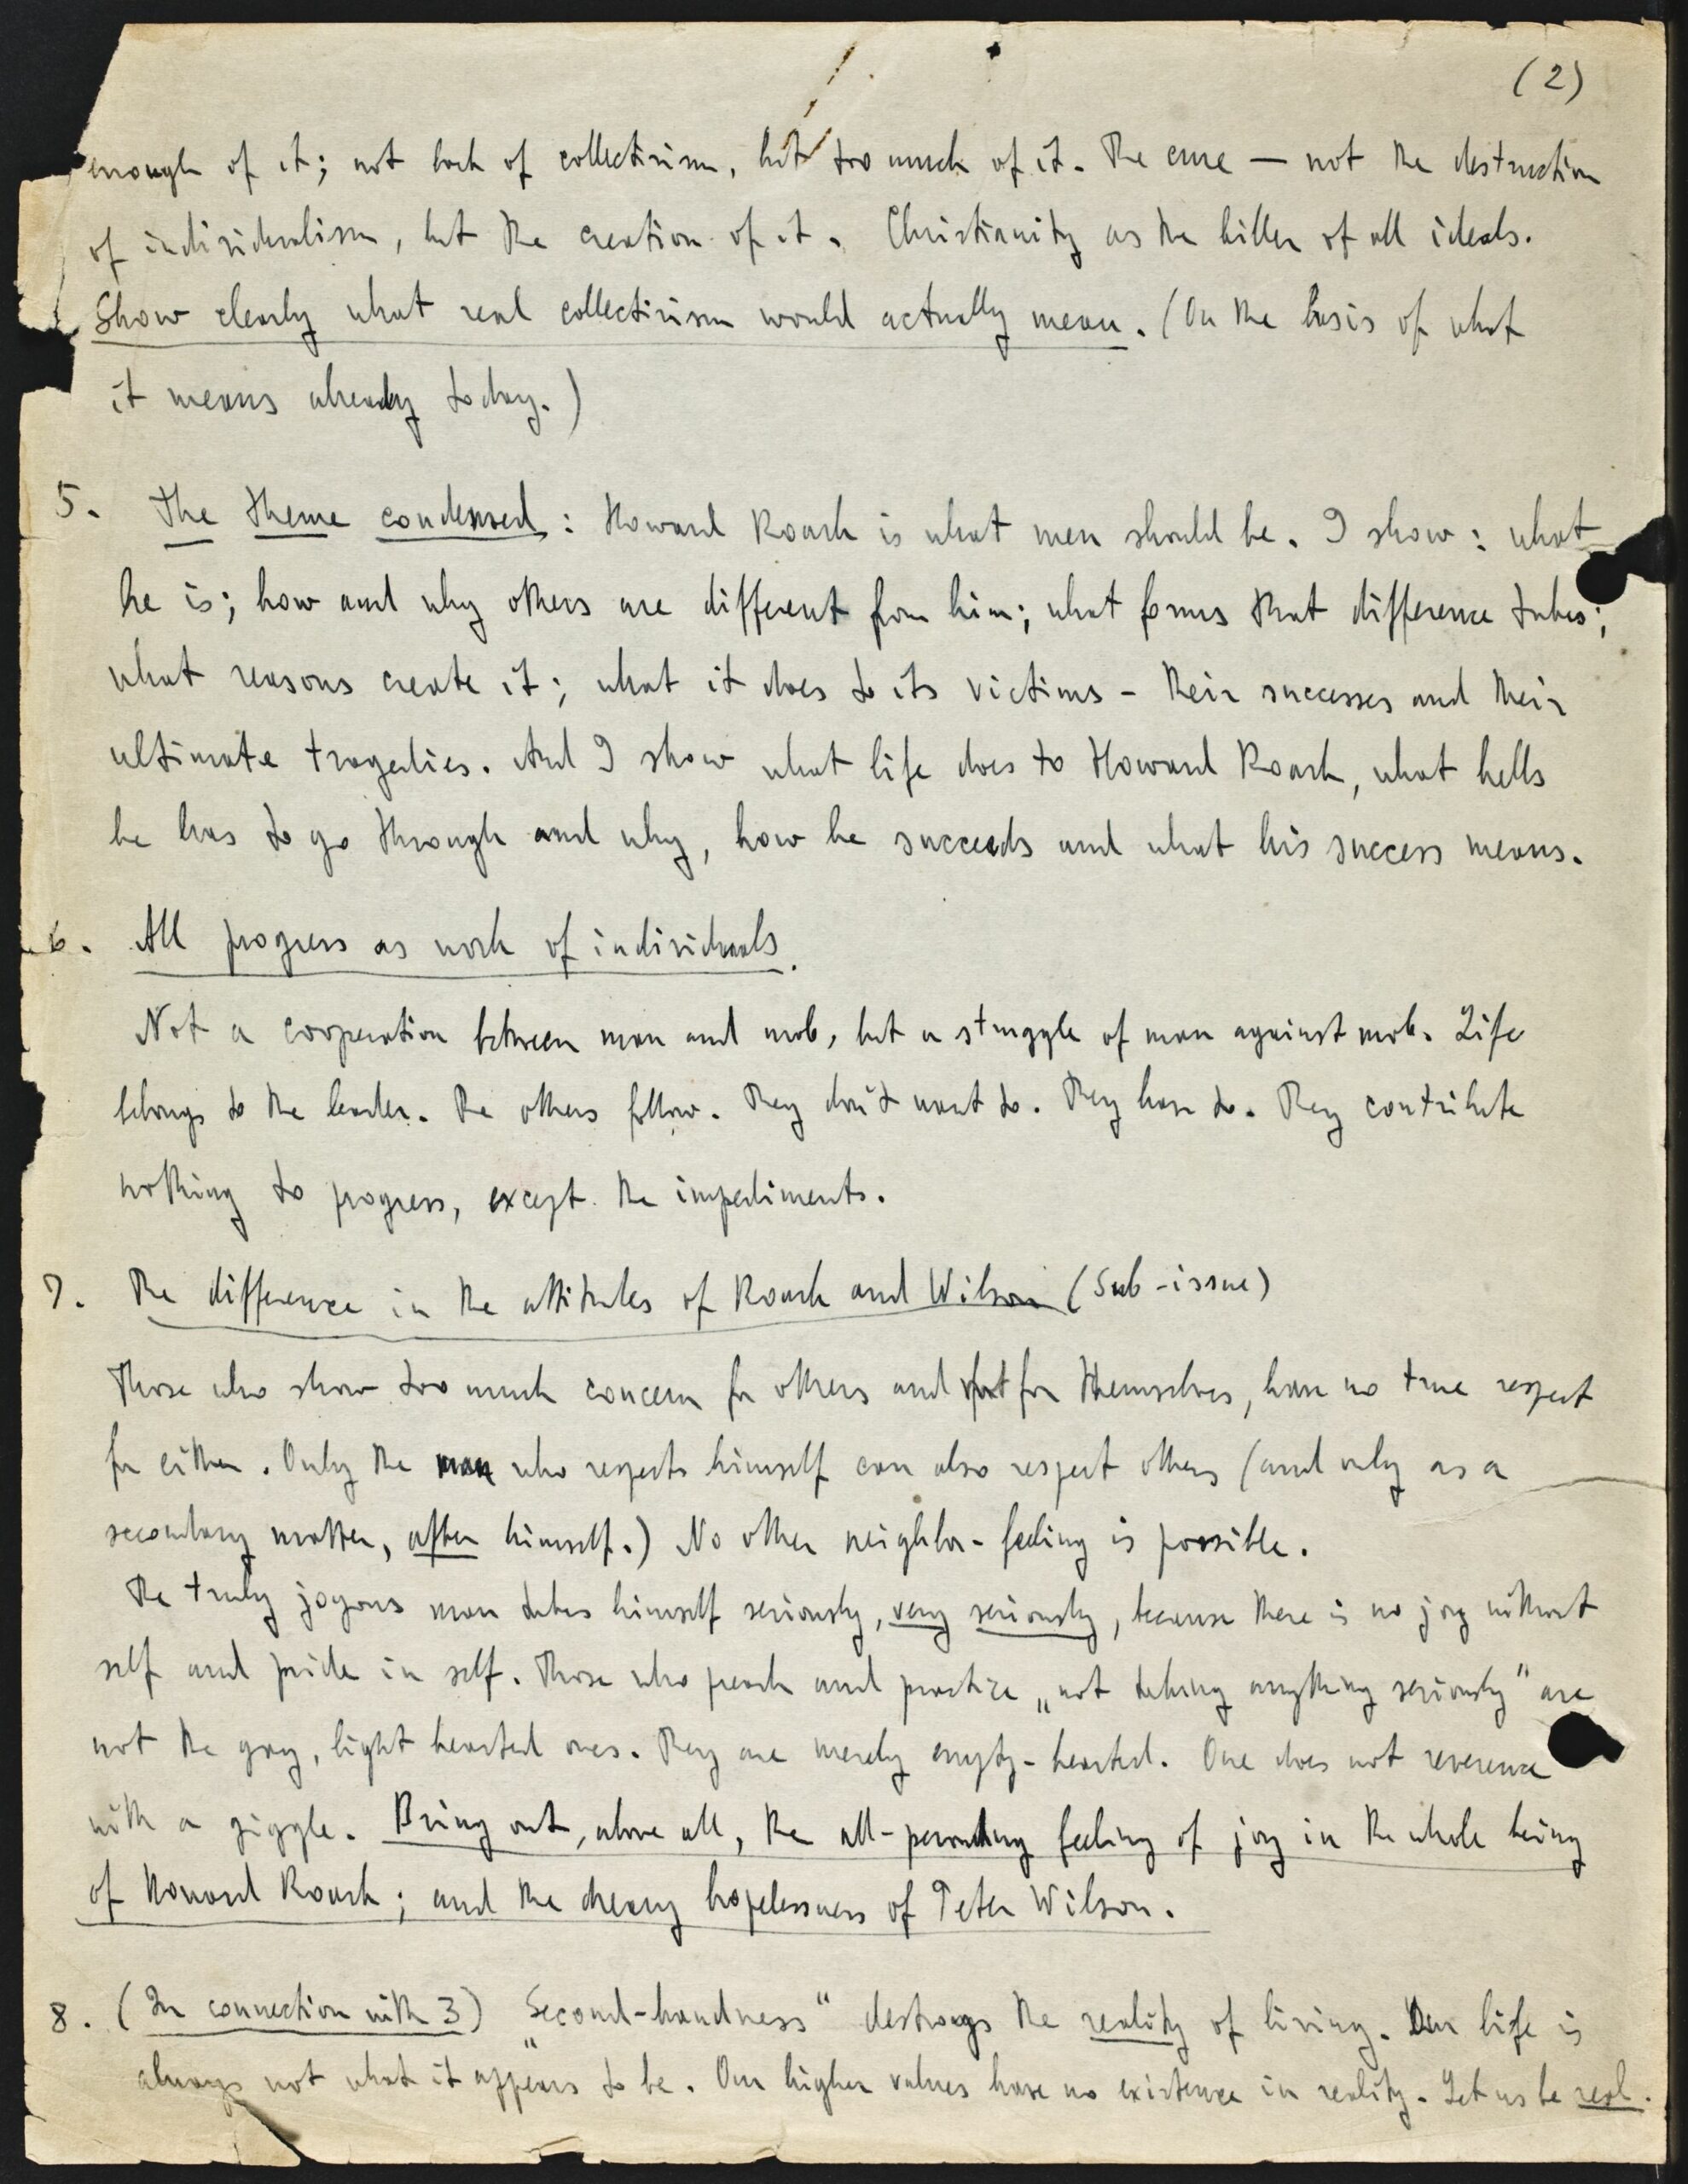 (2)
enough of it; not lack of collectivism, but too much of it. The cure — not the destruction
of individualism, but the creation of it. Christianity as the killer of all ideals.
Show clearly what real collectivism would actually mean. (On the basis of what
it means already today.)
5. The theme condensed: Howard Roark is what men should be. I show: what
he is; how and why others are different from him; what forms that difference takes;
what reasons create it; what it does to its victims - their successes and their
ultimate tragedies. And I show what life does to Howard Roark, what hells
he has to go through and why, how he succeeds and what his success means.
6. All progress as work of individuals.
Not a cooperation between man and mob, but a struggle of man against mob. Life
belongs to the leader. The others follow. They don't want to. They have to. They contribute
nothing to progress, except the impediments.
7. The difference in the attitudes of Roark and Wilson (Sub-issue)
Those who show too much concern for others and not for themselves, have no true respect
for either. Only the man who respects himself can also respect others (and only as a
secondary matter, after himself.) No other neighbor-feeling is possible.
The truly joyous man takes himself seriously, very seriously, because there is no joy without
self and pride in self. Those who preach and practice „not taking anything seriously" are
not the gay, light hearted ones. They are merely empty-hearted. One does not reverence
with a giggle. Bring out, above all, the all-pervading feeling of joy in the whole being
of Howard Roark; and the dreary hopelessness of Peter Wilson.
8. (In connection with 3) „Second-handness" destroys the reality of living. Our life is
always not what it appears to be. Our higher values have no existence in reality. Let us be real.